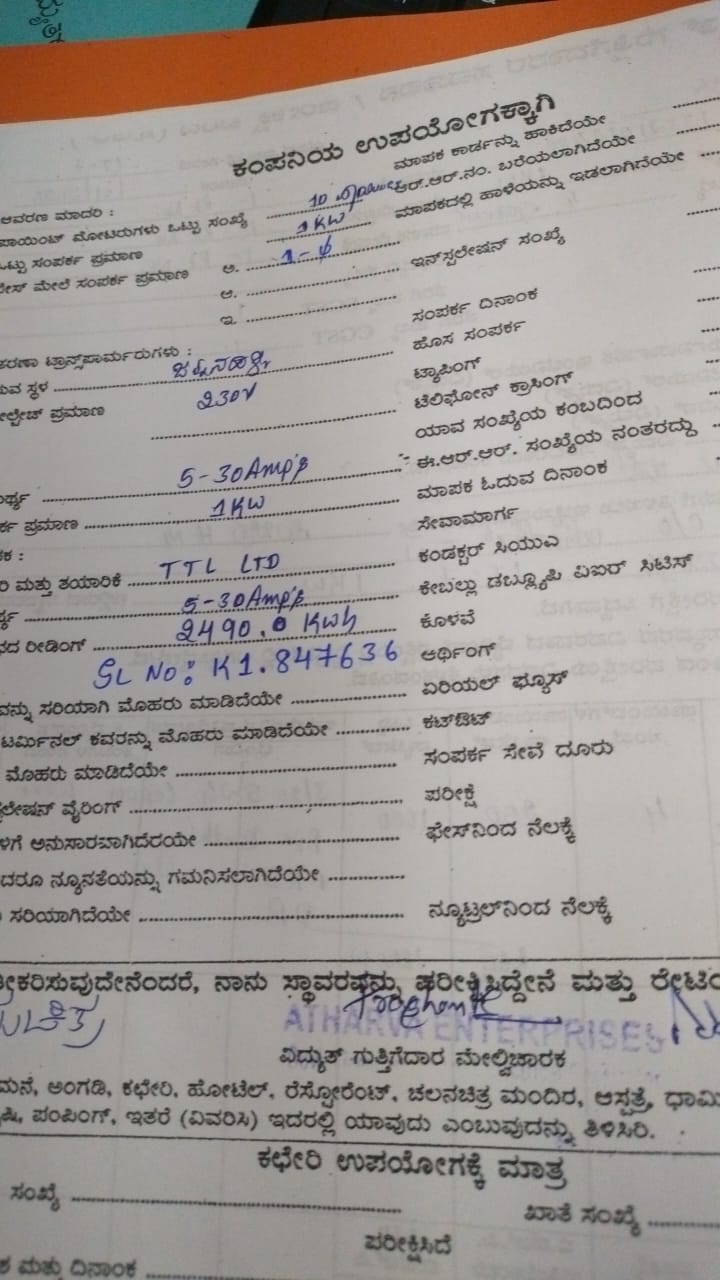 ಕಂಪನಿಯ ಉಪಯೋಗಕ್ಕಾಗಿ
ಮಾಪಕ ಕಾರ್ಡನ್ನು ಹಾಕಿದೆಯೇ
ಆವರಣ ಮಾದರಿ :
10
ಆರ್.ಆರ್.ನಂ. ಬರೆಯಲಾಗಿದೆಯೇ
ಪಾಯಿಂಟ್ ಮೋಟರುಗಳು ಒಟ್ಟು ಸಂಖ್ಯೆ
1KW
ಮಾಪಕದಲ್ಲಿ ಹಾಳೆಯನ್ನು ಇಡಲಾಗಿದೆಯೇ
ಒಟ್ಟು ಸಂಪರ್ಕ ಪ್ರಮಾಣ
ಮೇಲೆ ಸಂಪರ್ಕ ಪ್ರಮಾಣ ಅ. 1-ψ
ಆ. ಇನ್‌ಸ್ಪಲೇಷನ್ ಸಂಖ್ಯೆ
ಇ.
ಸಂಪರ್ಕ ದಿನಾಂಕ
ಟ್ರಾನ್ಸ್‌ಫಾರ್ಮರುಗಳು : ಹೊಸ ಸಂಪರ್ಕ
ಸ್ಥಳ ಟ್ಯಾಪಿಂಗ್
ಪ್ರಮಾಣ 230V ಟೆಲಿಫೋನ್ ಕ್ರಾಸಿಂಗ್
ಯಾವ ಸಂಖ್ಯೆಯ ಕಂಬದಿಂದ
5-30Amp's ಈ.ಆರ್.ಆರ್. ಸಂಖ್ಯೆಯ ನಂತರದ್ದು
ಪ್ರಮಾಣ 1KW ಮಾಪಕ ಓದುವ ದಿನಾಂಕ
ಸೇವಾಮಾರ್ಗ
ಮತ್ತು ತಯಾರಿಕೆ TTL LTD ಕಂಡಕ್ಟರ್ ಸಿಯುಎ
5-30Amp's ಕೇಬಲ್ಲು ಡಬ್ಲ್ಯೂಪಿ ವಿಐರ್ ಸಿಟಿಸ್
ರೀಡಿಂಗ್ 2490.0 Kwh ಕೊಳವೆ
SL No: K1.847636 ಆರ್ಥಿಂಗ್
ಸರಿಯಾಗಿ ಮೊಹರು ಮಾಡಿದೆಯೇ ಏರಿಯಲ್ ಫ್ಯೂಸ್
ಟರ್ಮಿನಲ್ ಕವರನ್ನು ಮೊಹರು ಮಾಡಿದೆಯೇ ಕಟ್‌ಔಟ್
ಮೊಹರು ಮಾಡಿದೆಯೇ ಸಂಪರ್ಕ ಸೇವೆ ದೂರು
ವೈರಿಂಗ್ ಪರೀಕ್ಷೆ
ಅನುಸಾರವಾಗಿದೆರಯೇ ಫೇಸ್‌ನಿಂದ ನೆಲಕ್ಕೆ
ನ್ಯೂನತೆಯನ್ನು ಗಮನಿಸಲಾಗಿದೆಯೇ
ಸರಿಯಾಗಿದೆಯೇ ನ್ಯೂಟ್ರಲ್‌ನಿಂದ ನೆಲಕ್ಕೆ
ನಾನು ಸ್ಥಾವರವನ್ನು ಪರೀಕ್ಷಿಸಿದ್ದೇನೆ ಮತ್ತು
ATHARVA ENTERPRISES
ವಿದ್ಯುತ್ ಗುತ್ತಿಗೆದಾರ ಮೇಲ್ವಿಚಾರಕ
ಮನೆ, ಅಂಗಡಿ, ಕಛೇರಿ, ಹೋಟೆಲ್, ರೆಸ್ಟೋರೆಂಟ್, ಚಲನಚಿತ್ರ ಮಂದಿರ, ಆಸ್ಪತ್ರೆ,
ಪಂಪಿಂಗ್, ಇತರೆ (ವಿವರಿಸಿ) ಇದರಲ್ಲಿ ಯಾವುದು ಎಂಬುವುದನ್ನು ತಿಳಿಸಿರಿ.
ಕಛೇರಿ ಉಪಯೋಗಕ್ಕೆ ಮಾತ್ರ
ಸಂಖ್ಯೆ ಖಾತೆ ಸಂಖ್ಯೆ
ಪರೀಕ್ಷಿಸಿದೆ
ಮತ್ತು ದಿನಾಂಕ